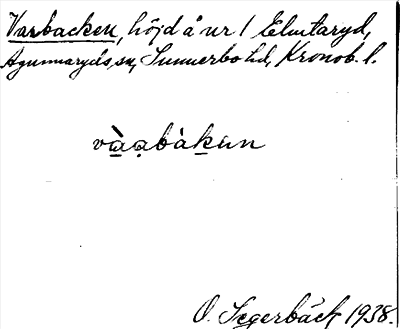 Varbacken, höjd å nr 1 Elmtaryd,
Agunnaryds sn, Sunnerbo hd, Kronob. l.
vàạbàkun
O. Segerbäck 1938.